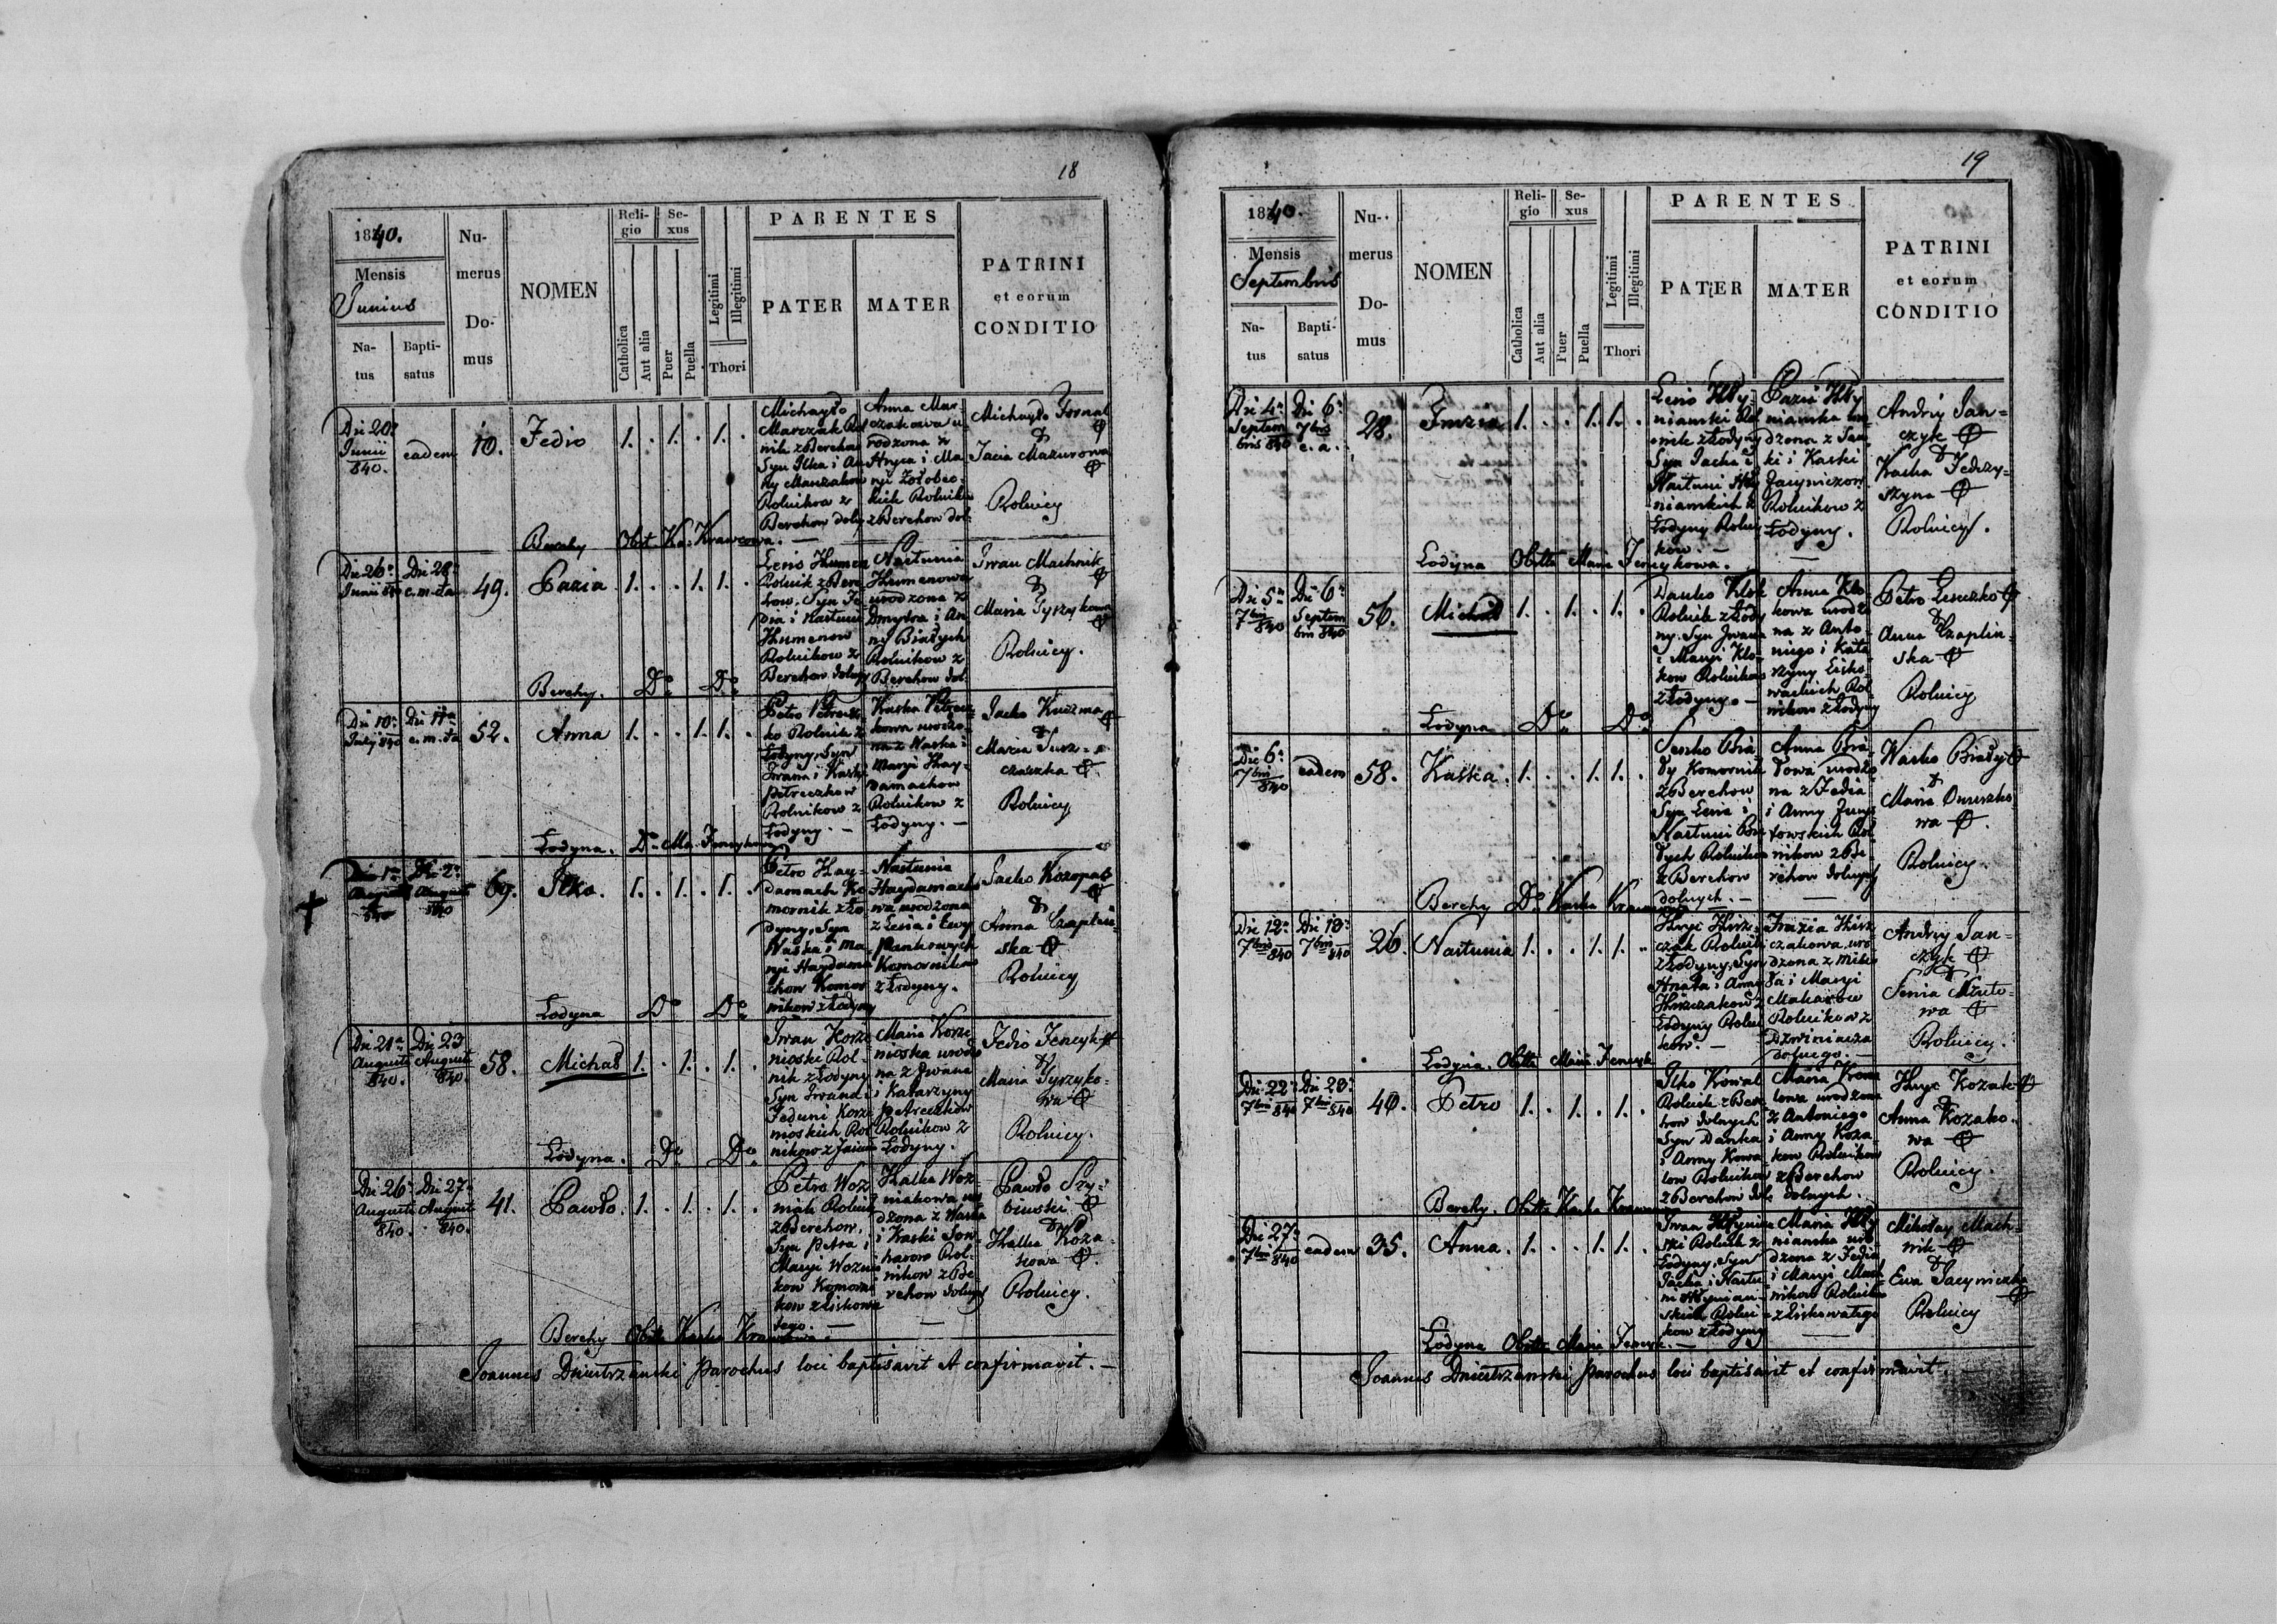 18
1840.
Mensis
Junius
Na-
tus
Bapti-
satus
Nu-
merus
Do-
mus
NOMEN
Reli-
gio
Catholica
Aut alia
Se-
xus
Puer
Puella
Legitimi
Illegitimi
Thori
PARENTES
PATER
MATER
PATRINI
et eorum
CONDITIO
Die 20a
Junii
840.
eadem
10.
Fedio
1. . 1. . 1. .
Michayło
Marczak Rol
nik z Berehow
Syn Ilka i An
ny Marczakow
Rolnikow z
Berehow dolny
Anna Mar-
czakowa u
rodzona z
Hryca i Ma
ryi
kich Rolnikow
z Berehow dol.
Michayło Fornal
&
Jacia Mazurowa
Rolnicy
Berehy Obst. Ka: Krawcowa. —
Die 26a
Junii 840
Die 28a
e. m. &a
49.
Pazia
1. . . 1. 1. .
Lesio Humen
Rolnik z Bere
how. Syn Fe
dia i Nastuni
Humenow
Rolnikow z
Berehow dolny
Nastunia
Humenowa
urodzona z
Dmytra i An
ny Białych
Rolnikow z
Berehow dol.
Iwan Machnik
&
Maria Tyszykowa
Rolnicy.
Berehy. Do Do
Die 10a
July 840
Die 11a
e. m. &a
52.
Anna
1. . . 1. 1. .
Petro Petrecz
ko Rolnik z
Łodyny, Syn
Iwana i Kaski
Petreczkow
Rolnikow z
Łodyny. —
Kaska Petrecz
kowa urodzo
na z Waska i
Maryi Hay-
damachow
Rolnikow z
Łodyny. —
Jacko Kuzma
&
Maria
Rolnicy
Łodyna. Do Ma. Fencykowa
Die 1a
Augusti
840
Die 2a
Augusti
840
69.
Ilko.
1. . 1. . 1. .
Petro Hay-
damach Ko
mornik z Ło
dyny, Syn
Waska i Ma
ryi Haydama
chow Komor
nikow z Łodyny
Nastunia
Haydamacho
wa urodzona
z Lesia i Ewy
Pankowych
Komornikow
z Łodyny.
Jacko Kozopas
&
Anna Czaplin
ska
Rolnicy
Łodyna Do Do
Die 21a
Augusti
840.
Die 23
Augusti
840.
58.
Michał
1. . 1. . 1. .
Iwan Korze
nioski Rol-
nik z Łodyny
Syn Iwana i
Feduni Korze
nioskich Rol
nikow z
Maria Korze
nioska urodzo
na z Iwana
i Katarzyny
Petreczkow
Rolnikow z
Łodyny.
Fedio Fencyk
&
Maria Tyszyko-
wa
Rolnicy.
Łodyna. Do Do
Die 26a
Augusti
840.
Die 27a
Augusti
840.
41.
Pawło.
1. . 1. . 1. .
Petro Woz
niak Rolnik
z Berehow.
Syn Petra i
Maryi Woznia
kow Komorni
kow z Liskowa
tego. —
Halka Woz-
niakowa uro
dzona z Waska
i Kaski
Rol-
nikow z Be-
rehow dolnych
—
Pawło
&
Halka Koza-
kowa
Rolnicy.
Berehy Obstx Kaska Krawcowa.
Joannes Dniestrzanski parochus loci baptisavit et confirmavit. —
19
1840.
Mensis
Septembris
Na-
tus
Bapti-
satus
Nu-
merus
Do-
mus
NOMEN
Reli-
gio
Catholica
Aut alia
Se-
xus
Puer
Puella
Legitimi
Illegitimi
Thori
PARENTES
PATER
MATER
PATRINI
et eorum
CONDITIO
Die 4a
Septem
bris 840
Die 6a
7bris
e. a.
28.
1. . . 1. 1. .
Lesio Hły-
nianski Rol
nik z Łodyny
Syn Jacka i
Nastuni Hły
nianskich z
Łodyny Rolni
kow. —
Pazia Hły
nianska uro
dzona z
ki i Kaski
Rolnikow z
Łodyny.
—
Andry Jan-
czyk
&
Kaska
Rolnicy.
Łodyna Obsttx Maria Fencykowa.
Die 5a
7bris
840
Die 6a
Septem
bris 840
56.
Michał
1. . 1. . 1. .
Danko Klok
Rolnik z Łody
ny. Syn Iwana
i Maryi Klo-
kow Rolnikow
z Łodyny. —
Anna Klo-
kowa urodzo
na z Anto-
niego i Kata
rzyny Lisko
wackich Rol
nikow z Łodyny
Petro Leseczko
&
Anna Czaplin-
ska
Rolnicy
Łodyna Do Do
Die 6a
7bris
840
eadem
58.
Kaska.
1. . . 1. 1. .
Senko Bia
ły Komornik
z Berehow
Syn Lesia i
Nastuni Bia
łych Rolnikow
z Berehow
dolnych. —
Anna Bia
łowa urodzo
na z Fedia
i Anny
Rol
nikow z Be-
rehow dolnych
—
Wasko Biały
&
Maria
wa
Rolnicy.
Berehy Do Kaska Krawcowa
Die 12a
7bris
840
Die 13a
7bris
840
26.
Nastunia
1. . . 1. 1. .
Hryc Hirz-
czak Rolnik
z Łodyny, Syn
Hnata i Anny
Hirzczakow z
Łodyny Rolni
kow. —
Frazia Hirz
czakowa, uro
dzona z Miko
ła i Maryi
Makarow
Rolnikow z
Dzwiniacza
dolnego. —
Andry Jan-
czyk
&
Fenia
wa
Rolnicy.
Łodyna. Obsttx Maria Fencyk
Die 22a
7bris 840
Die 23a
7bris 840
40.
Petro
1. . 1. . 1. .
Ilko Kowal
Rolnik z Bere
how dolnych
Syn Danka
i Anny Kowa
low Rolnikow
z Berehow dol.
Maria Kowa
lowa urodzona
z Antoniego
i Anny Koza
kow Rolnikow
z Berehow
dolnych.
Hryc Kozak
&
Anna Kozako-
wa
Rolnicy
Berehy. Obsttx Kaska Krawcowa
Die 27a
7bris
840
eadem
35.
Anna.
1. . . 1. 1. .
Iwan Hłynian
ski Rolnik z
Łodyny, Syn
Jacka i Nastu
ni Hłynian-
skich Rolni
kow z Łodyny
Maria Hły
nianska uro
dzona z Fedia
i Maryi Mach
nikow Rolnikow
z Liskowatego
—
Mikołay Mach-
nik
&
Ewa
Rolnicy
Łodyna Obsttx Maria Fencyk. —
Joannes Dniestrzanski parochus loci baptisavit et confirmavit